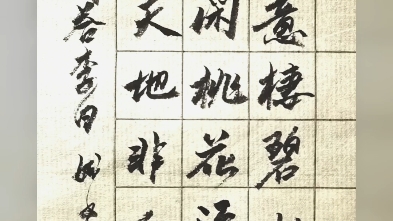 意棲碧
闲桃花
天地非
答李白